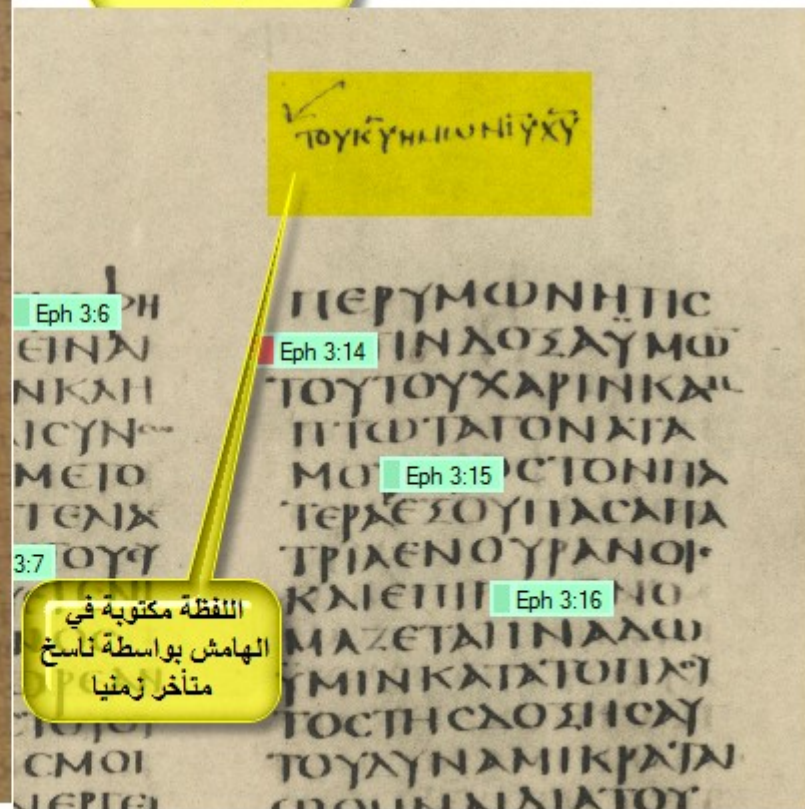 ΤΟΥΚ̅Υ̅ΗΜΩΝΙ̅Υ̅Χ̅Υ̅
Eph 3:6
ΕΙΝΑΙ
ΝΚΛΗ
CΥΝ
3:7
CΜΟΙ
ΝΕΡΓΕΙ
ΠΕΡΥΜΩΝΗΤΙC
Eph 3:14 ΙΝΔΟΞΑΫΜΩ
ΤΟΥΤΟΥΧΑΡΙΝΚΑΜ
ΠΤΩΤΑΓΟΝΑΤΑ
ΜΟΥ Eph 3:15 ΟCΤΟΝΠΑ
ΤΕΡΑΕΞΟΥΠΑCΑΠΑ
ΤΡΙΑΕΝΟΥΡΑΝΟΙC
ΚΑΙΕΠΙ Eph 3:16 ΝΟ
ΜΑΖΕΤΑΙΙΝΑΔΩ
ΥΜΙΝΚΑΤΑΤΟΠΛΟΥ
ΤΟCΤΗCΔΟΞΗCΑΥ
ΤΟΥΔΥΝΑΜΙΚΡΑΤΑΙ
ΩΘΗΝΑΙΔΙΑΤΟΥ
اللفظة مكتوبة في
الهامش بواسطة ناسخ
متأخر زمنيا